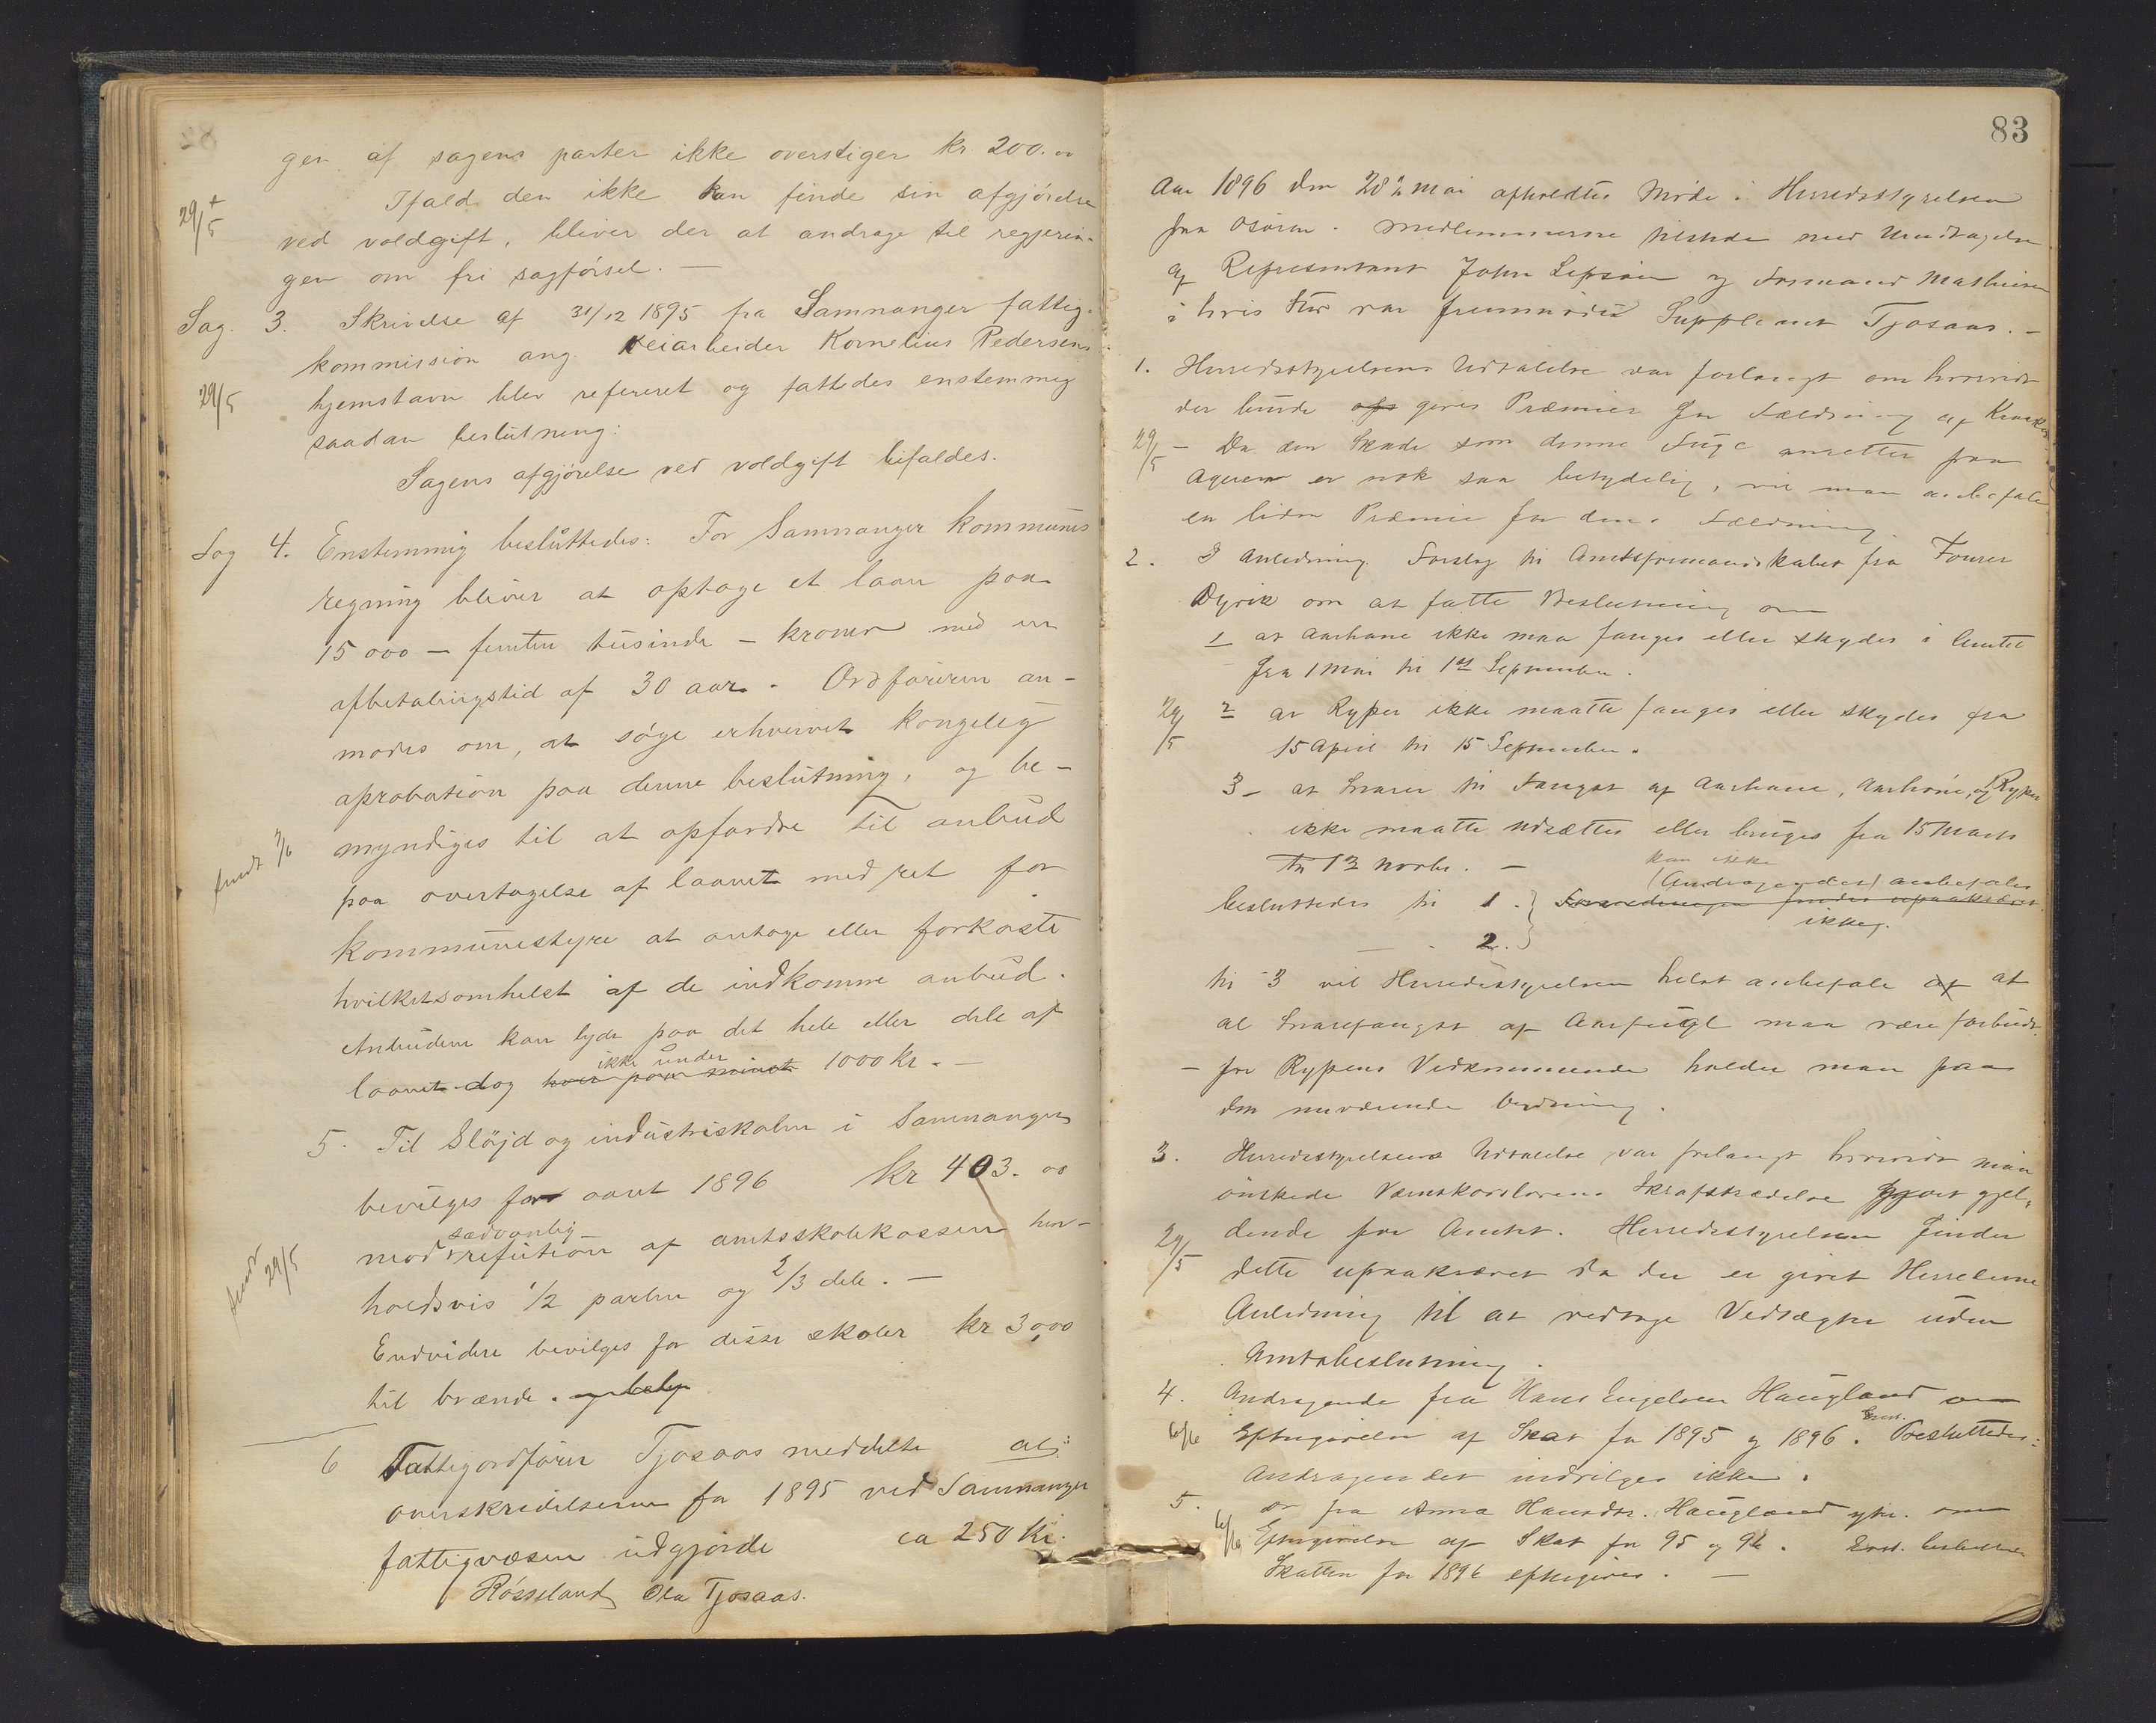 gen af sagens parter ikke overstiger kr 200.00
Ifald den ikke kan finde sin afgjörelse
29/5
ved voldgift, bliver der at andrage til regjerin-
gen om fri sagförsel. —
Sag. 3. Skrivelse af 31/12 1895 fra Samnanger fattig-
kommission ang. Veiarbeider Kornelius Pedersens
29/5
hjemstavn blev refereret og fattedes enstemmig
saadan beslutning:
Sagens afgjörelse ved voldgift bifaldes.
Sag 4. Enstemmig besluttedes: For Samnanger kommunes
regning bliver at optage et laan paa
15000 — femten tusinde — kroner med en
afbetalingstid af 30 aar. Ordföreren an-
modes om, at söge erhvervet kongelig
aprobation paa denne beslutning, og be-
myndiges til at opfordre til anbud
paa overtagelse af laanet med ret for
kommunestyre at antage eller forkaste
hvilketsomhelst af de indkomne anbud.
Anbudene kan lyde paa det hele eller dele af
ikke under
laanet dog hver paa mindst 1000 kr. —
5. Til Slöjd og industriskolen i Samnanger
bevilges for aaret 1896 kr 403.00
sedvanlig
mod refution af amtsskolekassen hen-
29/5
holdsvis 1/2 parten og 2/3 dele. —
Endvidere bevilges for disse skoler kr 30,00
til brænde.
6 Fattigordförer Tjosaas meddelte at
overskridelserne for 1895 ved Samnanger
fattigvæsen udgjorde ca 250 Kr.
Rösseland Ola Tjosaas.
83
Aar 1896 den 28de Mai afholdtes Möde i Herredsstyrelsen
paa Osören. Medlemmerne tilstede med Undtagelse
af Representant John Lepsöen og Formand Mathiesen
i hvis sted var fremmödt Suppleant Tjosaas. —
1. Herredsstyrelsens Udtalelse var forlangt om hvorvidt
der burde gives Præmier for Fældning af Kraaker
29/5
— Da den Skade som denne Fugl anretter paa
Ageren er nok saa betydelig, vil man anbefale
en liden Præmie for dens Fældning
2. I Anledning Forslag til Amtsformandskabet fra
Dyrik om at fatte Beslutning om
1 at Aarhane ikke maa fanges eller skydes i Amtet
fra 1 Mai til 1st September.
29/5
2 at Ryper ikke maatte fanges eller skydes fra
15 April til 15 September.
3 — at Snarer til Fangst af Aarhane, Aarhöne, og Ryper
ikke maatte udsættes eller bruges fra 15 Marts
til 1st Novbr. —
kan ikke
(Andragendet) anbefales
besluttedes til 1.
ikke.
2.
til 3 vil Herredsstyrelsen helst anbefale at
al Snarefangst af Aarfugl maa være forbudt.
— for Rypens Vedkommende holder man paa
den nuværende Ordning.
3. Herredsstyrelsens Udtalelse var forlangt hvorvidt man
önskede Værnskovlovens Ikrafttrædelse gjort gjel-
29/5
dende for Amtet. Herredsstyrelsen finder
dette upaakrævet da der er givet Herrederne
Anledning til at vedtage Vedtægter uden
Amtsbeslutning.
4. Andragende fra Hans Engelsen Haugland om
Enst.
6/6 Eftergivelse af Skat for 1895 og 1896. Besluttedes:
Andragendet indvilges ikke.
5. do fra Anna Hansdtr. Haugland ytre. om
6/6 Eftergivelse af Skat for 95 og 96. Enst. besluttedes
Skatten for 1896 eftergives. —